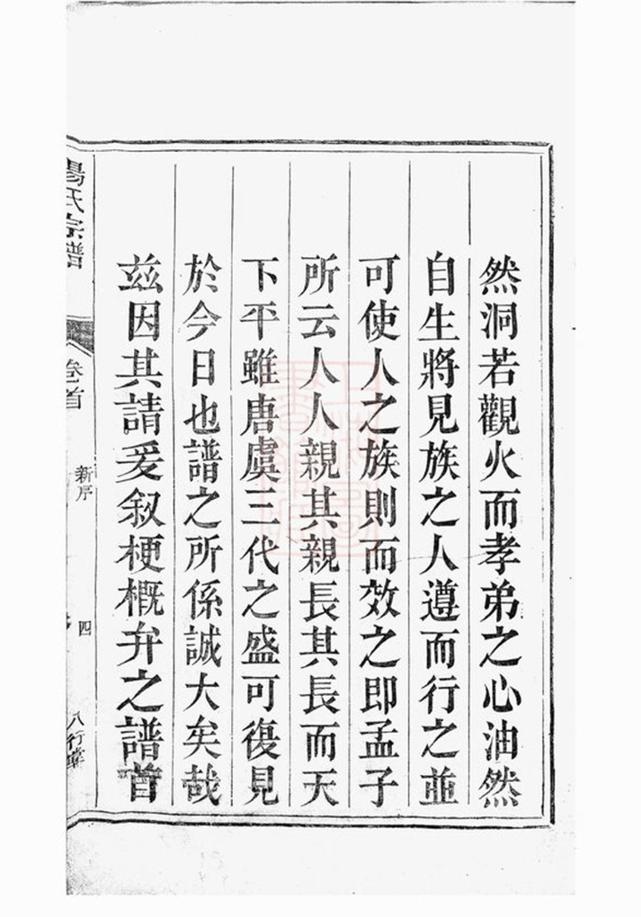 然洞若觀火而孝弟之心油然
自生將見族之人遵而行之並
可使人之族則而效之即孟子
所云人人親其親長其長而天
下平雖唐虞三代之盛可復見
於今日也譜之所係誠大矣哉
兹因其請爰叙梗概弁之譜首
楊氏宗譜
卷首
新序
四
八行堂